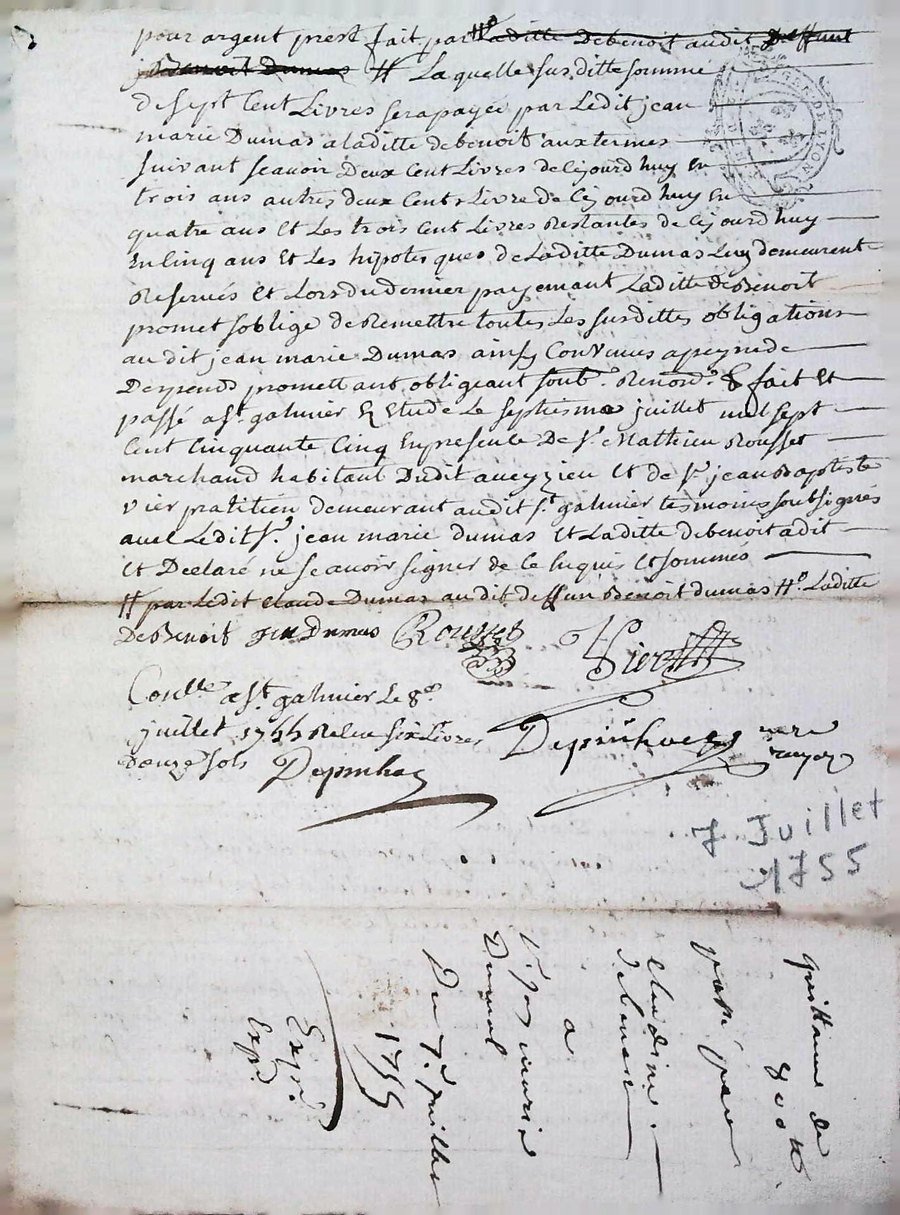 pour argent prest fait par # la ditte debenoit audit deffunt
Benoit Dumas # La quelle susditte somme
de sept Cent Livres sera payée par Ledit jean
marie Dumas a laditte debenoit aux termes
suivant scavoir Deux Cent Livres de cejourd huy en
trois ans autres deux Cents Livre de Cejourd huy En
quatre ans Et Les trois Cent Livres Restantes de Cejourd huy
En Cinq ans Et Les hipoteques de Laditte Dumas Luy demeurent
Reservés Et Lors du dernier payemant Laditte deBenoit
promet s'oblige de Remettre toutes Les susdittes obligations
au dit jean marie Dumas, ainsy Convenus a peyne de
Depends promettant, obligeant soub. Renon. & fait Et
passé a St. galmier En Etude Le septiesme juillet mil sept
Cent Cinquante Cinq En presence De Sr. Mathieu Rousset
marchand habitant Dudit aveyzieu Et de Sr. jean Baptiste
vier pratitien demeurant audit St. galmier tesmoins soubsignés
avec Ledit Sr. jean marie dumas Et Laditte debenoit a dit
Et Declaré ne scavoir signer de Ce Enquis Et sommés
# par Ledit Claude Dumas audit deffun Benoit dumas #. Laditte
DeBenoit jm Dumas Rousset Vier
Conlle. a St. galmier Le 8e.
juillet 1755 Relue six Livres
Douze sols Depinhac
Depinhac
DE LYON
7 Juillet
1755
quittance de
passé par
Claudine
debenoit
a
Sr. Jean marie
Dumas
Du 7e. juillet
1755
Exp.
Exp.